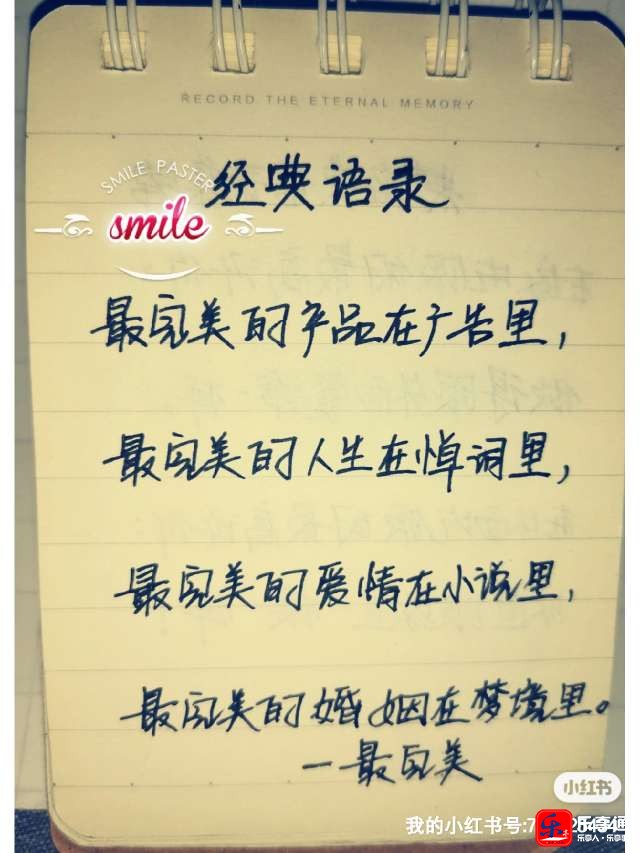 RECORD THE ETERNAL MEMORY
SMILE PASTER
smile
经典语录
最完美的产品在广告里，
最完美的人生在悼词里，
最完美的爱情在小说里，
最完美的婚姻在梦境里。
—最完美
小红书
我的小红书号:7
乐
乐享通